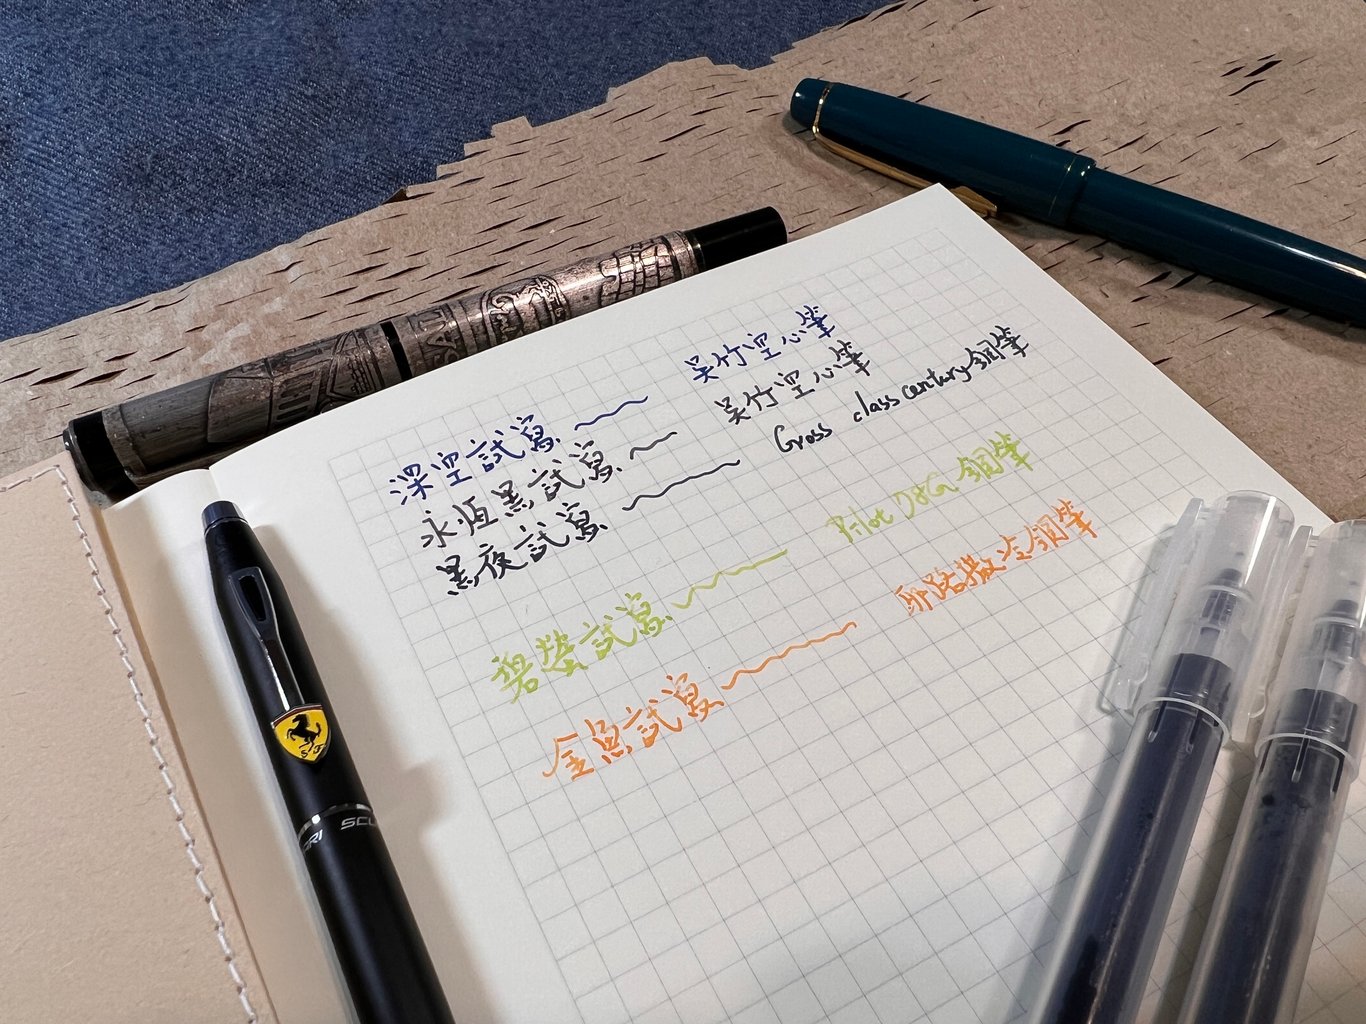 深空試寫 吴竹空心筆
永恆黑試寫 吴竹空心筆
黑夜試寫 Cross class century 鋼筆
碧螢試寫 Pilot 78G 鋼筆
金魚試寫 耶路撒冷鋼筆
SF